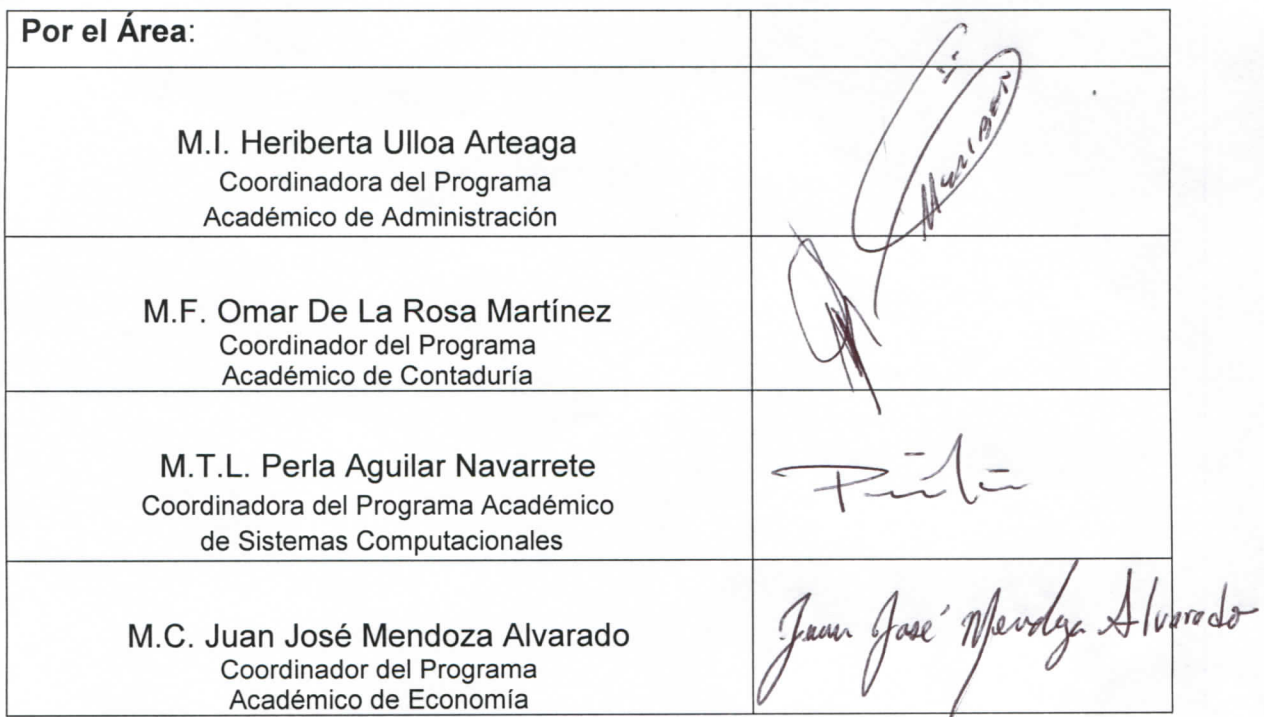 Por el Área:
M.I. Heriberta Ulloa Arteaga
Coordinadora del Programa
Académico de Administración
M.F. Omar De La Rosa Martínez
Coordinador del Programa
Académico de Contaduría
M.T.L. Perla Aguilar Navarrete
Coordinadora del Programa Académico
de Sistemas Computacionales
M.C. Juan José Mendoza Alvarado
Juan José Mendoza Alvarado
Coordinador del Programa
Académico de Economía